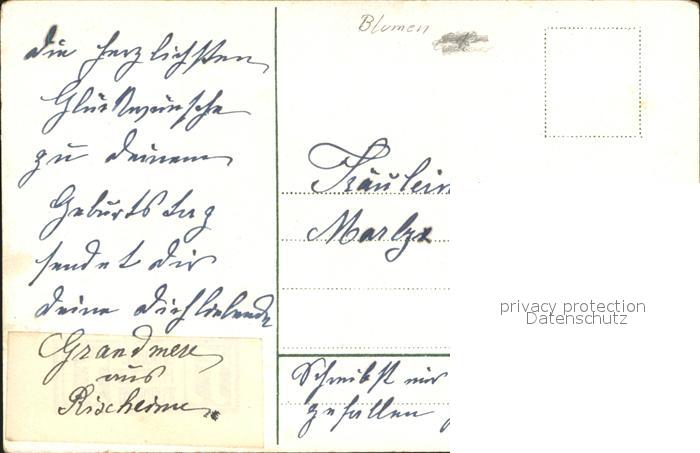 Blumen
die herzlichsten
Glückwünsche
zu deinem
Geburtstag
sendet dir
deine dich liebende
Grandmere
aus
Rixheim
Fräulein
Marlyx
Schreibst mir
gefallen
privacy protection
Datenschutz